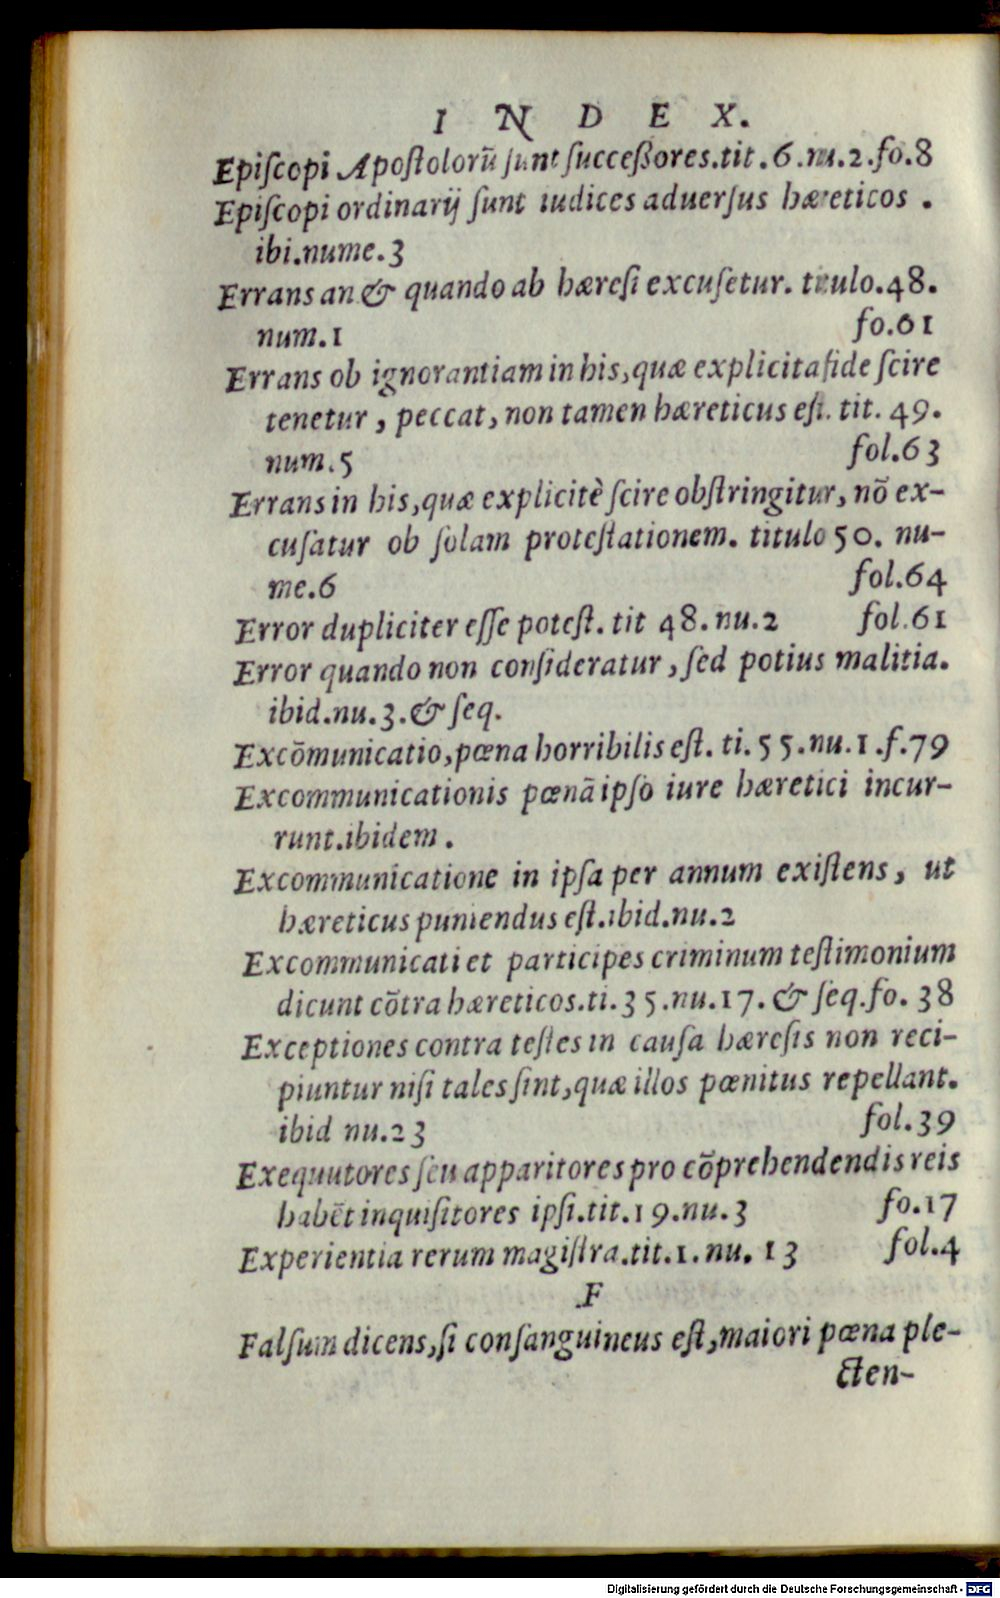 INDEX.
Epiſcopi Apoſtolorū ſunt ſucceßores.tit.6.nu.2.fo.8
Epiſcopi ordinarij ſunt iudices aduerſus hæreticos.
ibi.nume.3
Errans an & quando ab hæreſi excuſetur. titulo.48.
num.1 fo.61
Errans ob ignorantiam in his,quæ explicita fide ſcire
tenetur, peccat, non tamen hæreticus eſt. tit. 49.
num.5 fol.63
Errans in his,quæ explicitè ſcire obſtringitur, nō ex-
cuſatur ob ſolam proteſtationem. titulo 50. nu-
me.6 fol.64
Error dupliciter eſſe poteſt. tit 48.nu.2 fol.61
Error quando non conſideratur, ſed potius malitia.
ibid.nu.3.& ſeq.
Excōmunicatio,pœna horribilis eſt. ti.55.nu.1.f.79
Excommunicationis pœnā ipſo iure hæretici incur-
runt.ibidem.
Excommunicatione in ipſa per annum exiſtens, ut
hæreticus puniendus eſt.ibid.nu.2
Excommunicati et participes criminum teſtimonium
dicunt cōtra hæreticos.ti.35.nu.17.& ſeq.fo. 38
Exceptiones contra teſtes in cauſa hæreſis non reci-
piuntur niſi tales ſint,quæ illos pœnitus repellant.
ibid nu.23 fol.39
Exequutores ſeu apparitores pro cōprehendendis reis
habēt inquiſitores ipſi.tit.19.nu.3 fo.17
Experientia rerum magiſtra.tit.1.nu. 13 fol.4
F
Falſum dicens,ſi conſanguineus eſt,maiori pœna ple-
cten-
Digitalisierung gefördert durch die Deutsche Forschungsgemeinschaft - DFG